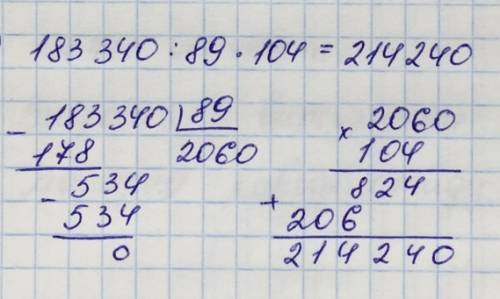 183 340 : 89 · 104 = 214 240
- 183 340 | 89
178 2060
- 534
534
0
x 2060
104
824
+ 206
214 240